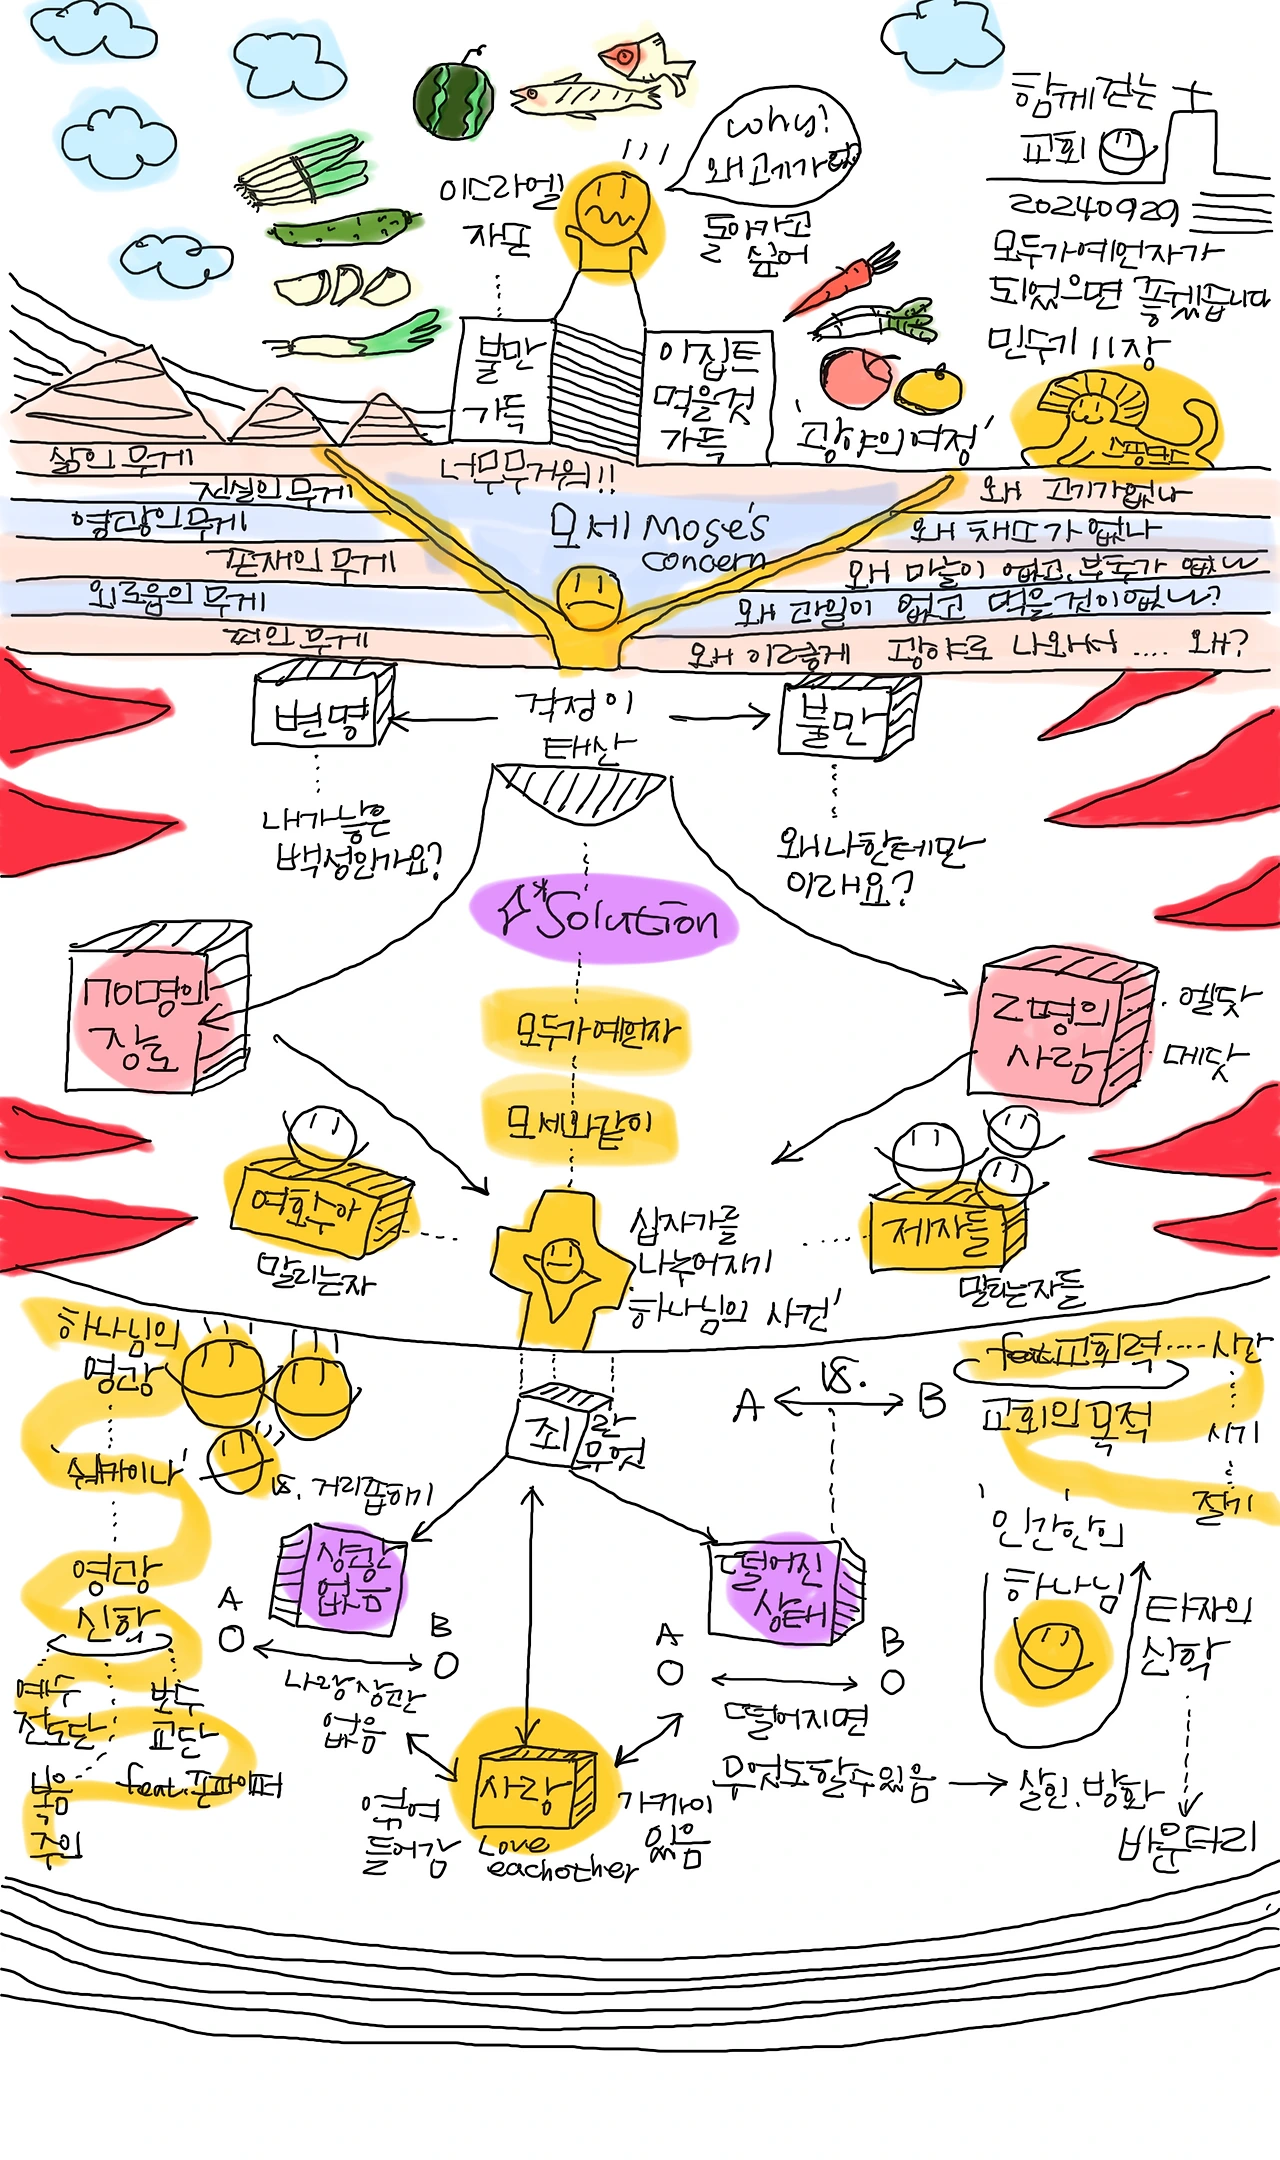 함께 걷는
교회
20240929
모두가예언자가
되었으면 좋겠습니다
민수기 11장
why?
왜 고기가 없
이스라엘
자손
돌아가고
싶어
불만
가득
이집트
먹을것
가득
'광야의여정'
스핑크스
삶의 무게
진실의 무게
영광의 무게
존재의 무게
외로움의 무게
죄의 무게
너무무거워!!
모세 Mose's
concern
왜 고기가없나
왜 채소가 없나
왜 마늘이 없고, 부추가 없나
왜 과일이 없고 먹을것이없나?
왜 이렇게 광야로 나와서 .... 왜?
변명
걱정이
태산
불만
내가낳은
백성인가요?
왜나한테만
이래요?
Solution
70명의
장로
모두가예언자
모세와같이
2명의
사람
엘닷
메닷
여호수아
말리는자
십자가를
나누어지기
'하나님의 사건'
제자들
말리는자들
하나님의
영광
'쉐카이나'
영광
신학
예수
전도단
보수
교단
복음
주의
feat.존파이퍼
죄란
무엇
vs. 거리좁히기
상관
없음
A
B
나랑상관
없음
A
vs.
B
떨어진
상태
A
B
떨어지면
무엇도할수있음
살인, 방화
사랑
Love
eachother
엮여
들어감
가까이
있음
feat.교회력
시간
시기
절기
교회의 목적
'인간'안의
하나님
타자의
신학
바운더리